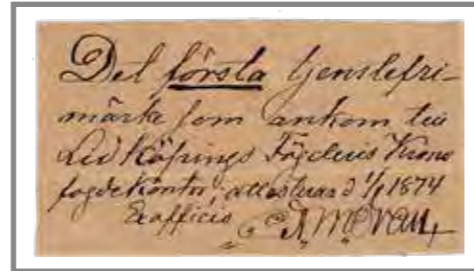 Det första tjenstefri-
märke som ankom till
Lidköpings Fögderis Krono
fogdekontor, attesterar d 1/1 1874
Exofficio